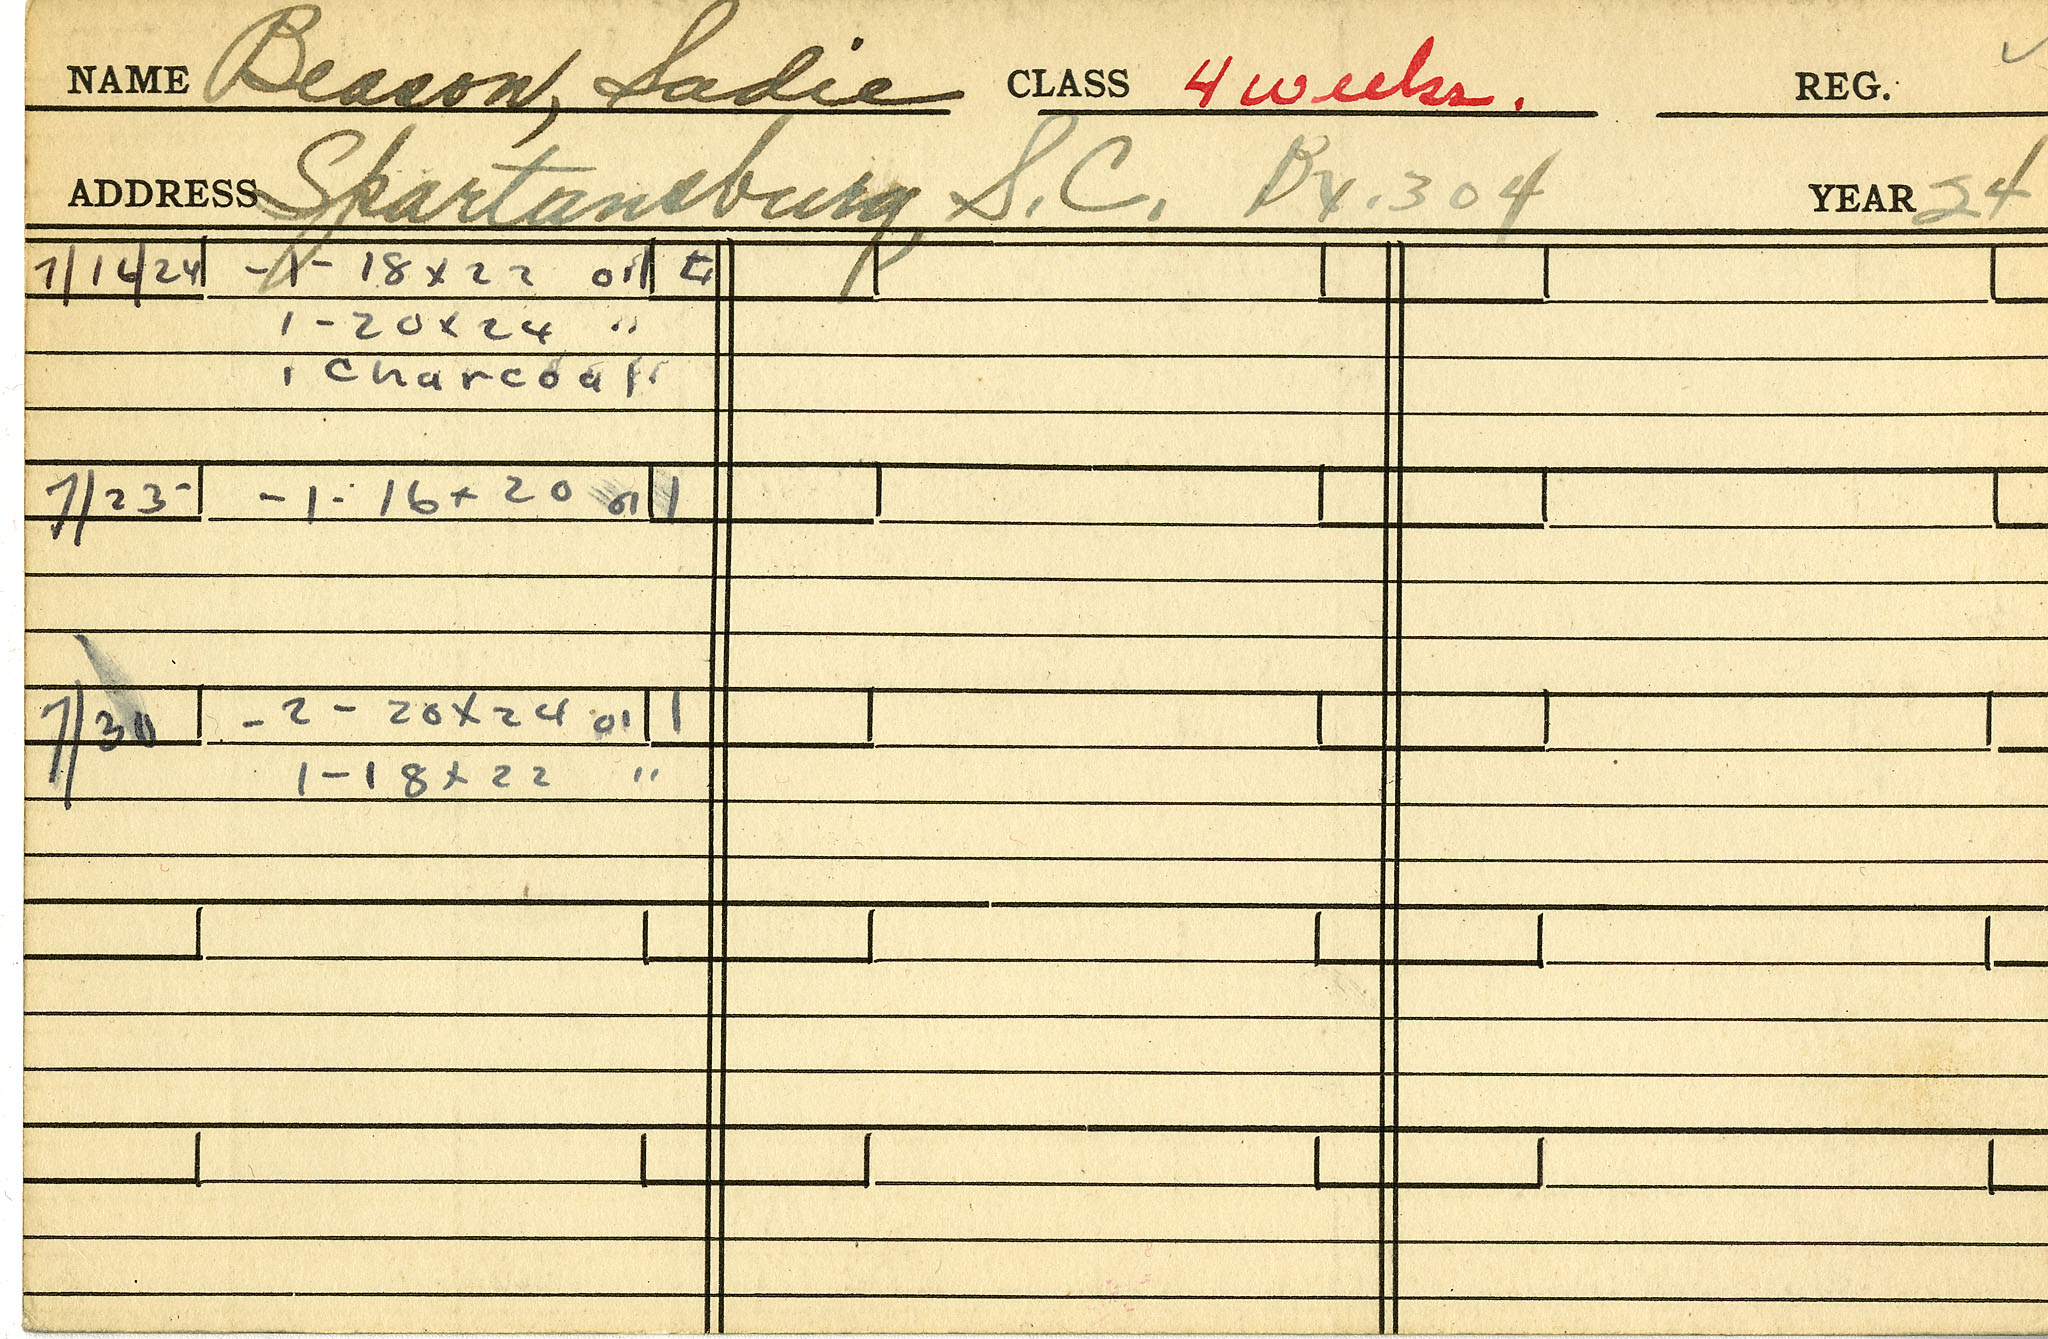 NAME Beason, Sadie CLASS 4 weeks. REG.
ADDRESS Spartansburg, S.C. Bx. 304 YEAR 24
7/16/24 -1- 18 x 22 oil
1 - 20 x 24 "
1 Charcoal
7/23 - 1 - 16 x 20 oil
7/30 - 2 - 20 x 24 oil
1 - 18 x 22 "